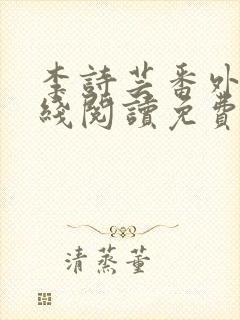 李詩芸番外
綫閱讀免費
清蒸董